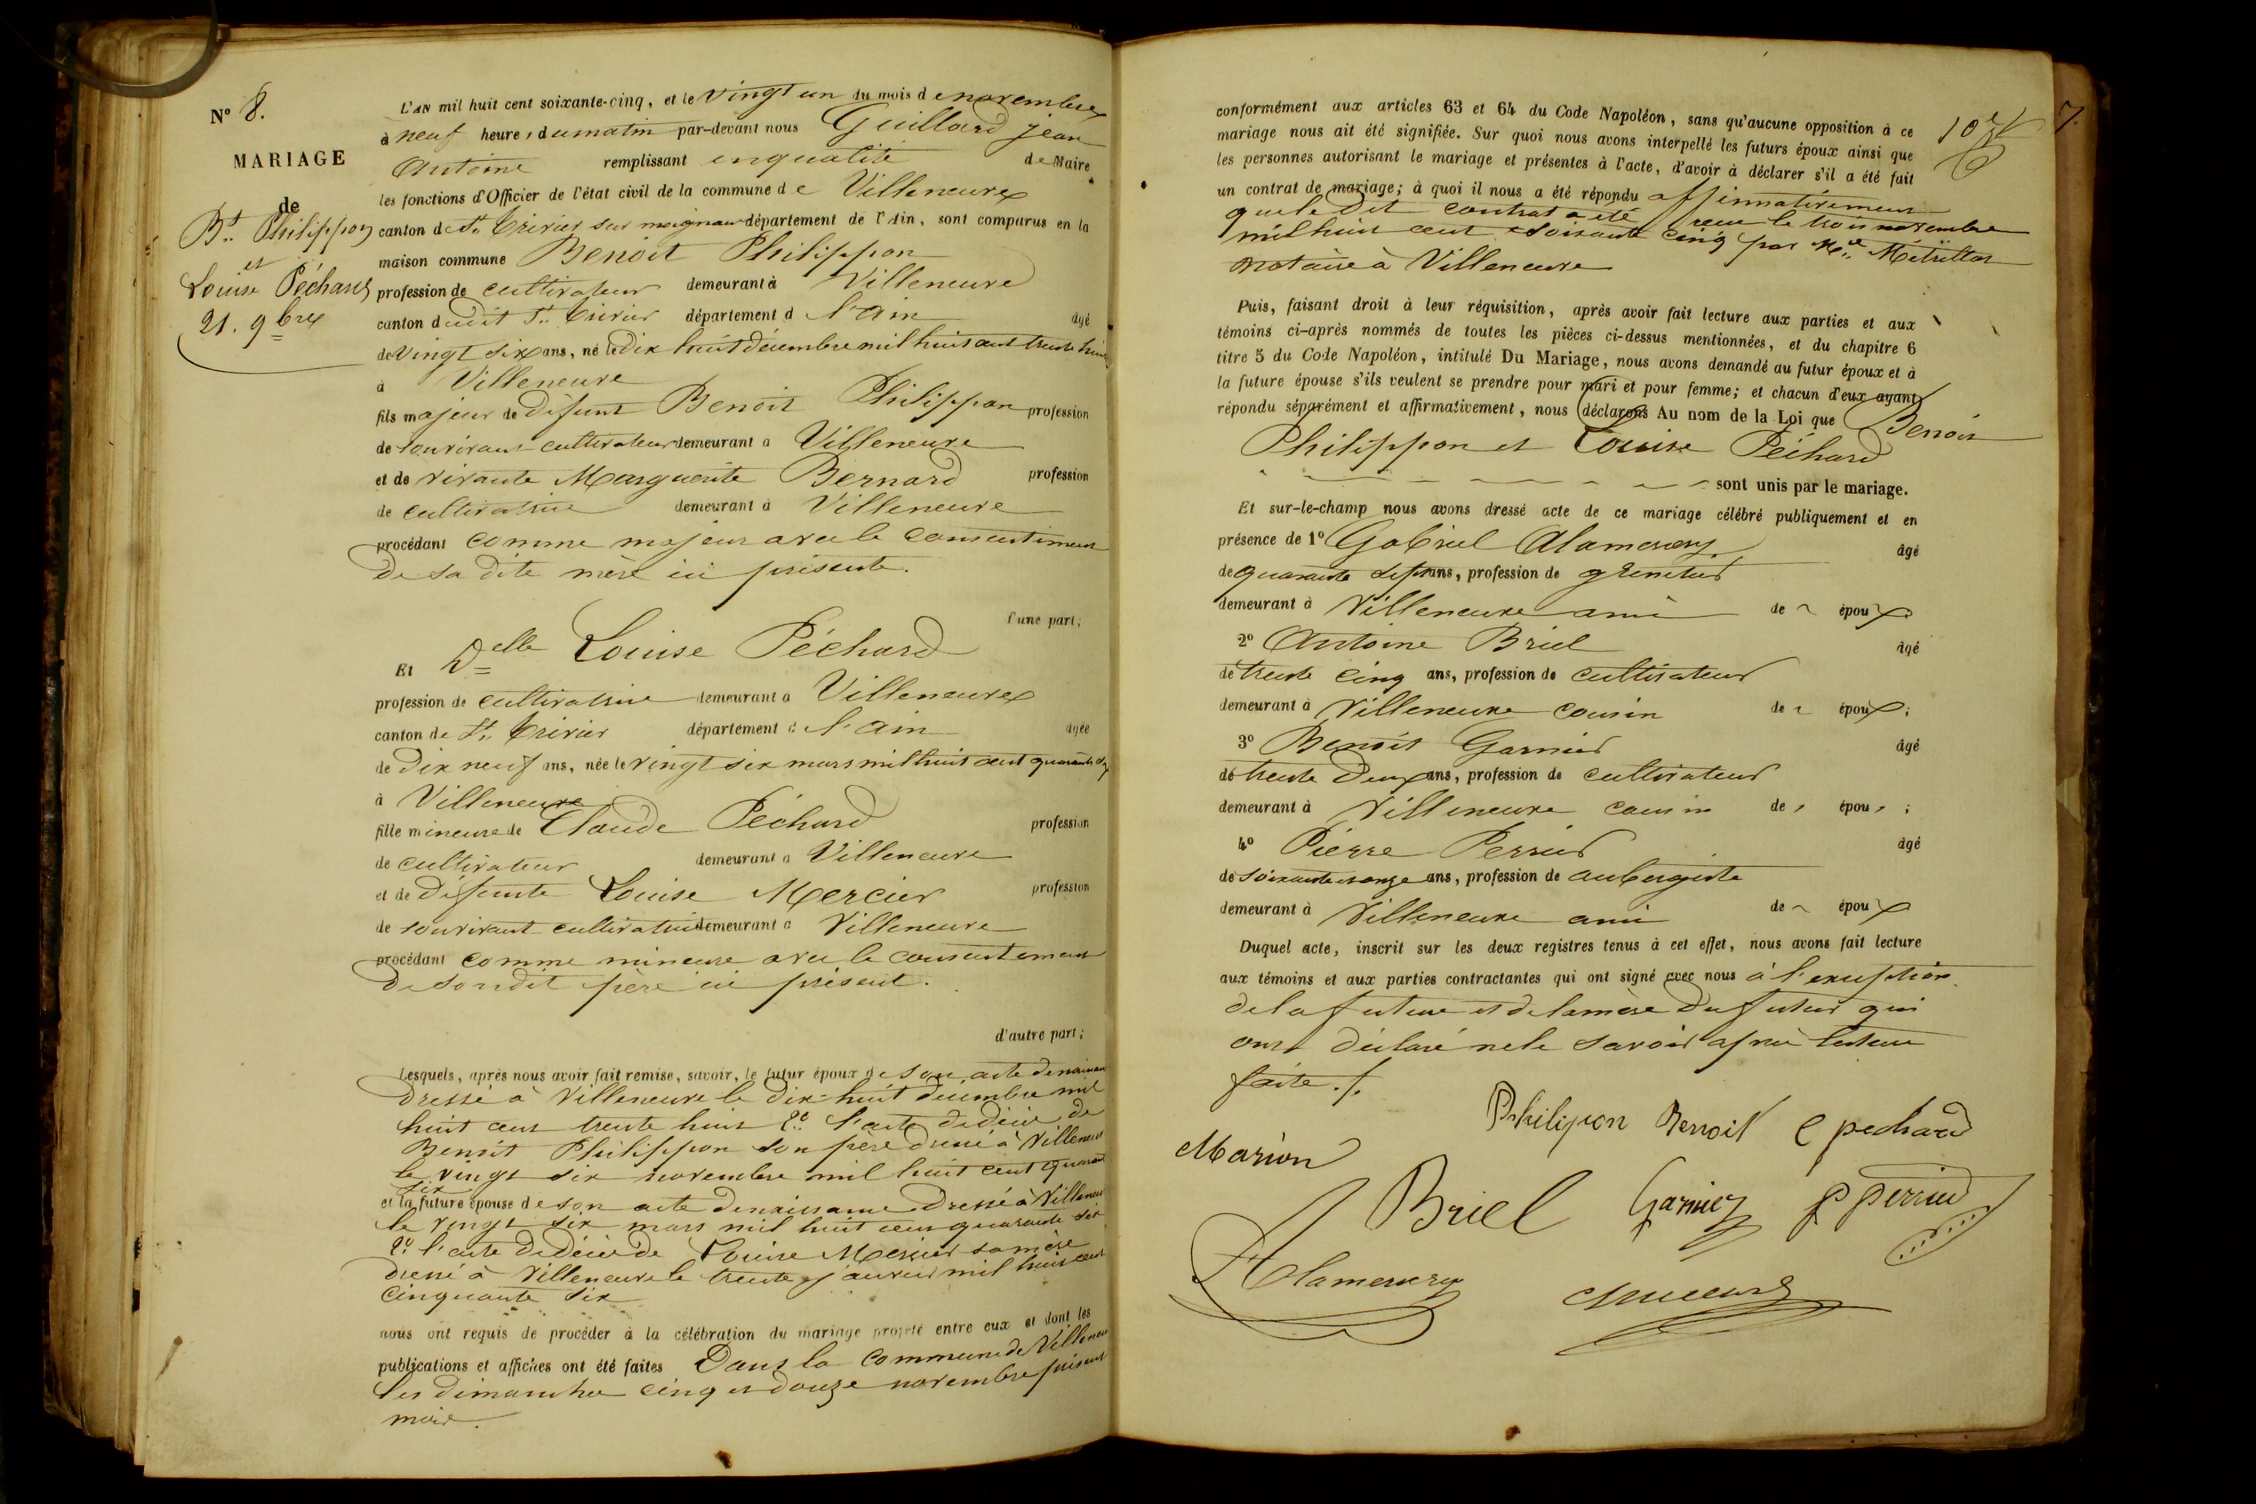 N° 8.
MARIAGE
de
Bt. Philippon
et
Louise Péchard
21. 9bre
L'AN mil huit cent soixante-cinq, et le vingt un du mois de novembre
à neuf heures du matin par-devant nous Guillard jean
Antoine remplissant en qualité de Maire
les fonctions d'Officier de l'état civil de la commune de Villeneuve
canton de St. Trivier sur moignans département de l'Ain, sont comparus en la
maison commune Benoit Philippon
profession de cultivateur demeurant à Villeneuve
canton dudit St. Trivier département d l'ain âgé
de vingt six ans, né le dix huit décembre mil huit cent trente huit
à Villeneuve
fils majeur de défunt Benoit Philippon profession
de son vivant cultivateur demeurant à Villeneuve
et de vivante Marguerite Bernard profession
de cultivatrice demeurant à Villeneuve
procédant comme majeur avec le consentement
de sa dite mère ici présente.
l'une part;
Et Delle Louise Péchard
profession de cultivatrice demeurant à Villeneuve
canton de St. Trivier département d l'ain âgée
de dix neuf ans, née le vingt six mars mil huit cent quarante six
à Villeneuve
fille mineure de Claude Péchard profession
de cultivateur demeurant à Villeneuve
et de défunte Louise Mercier profession
de son vivant cultivatrice demeurant à Villeneuve
procédant comme mineure avec le consentement
de son dit père ici présent.
d'autre part;
Lesquels, après nous avoir fait remise, savoir, le futur époux de son acte de naissance
dressé à Villeneuve le dix-huit décembre mil
huit cent trente huit 2° l'acte de décès de
Benoit Philippon son père dressé à Villeneuve
le vingt six novembre mil huit cent quarante
six
et la future épouse de son acte de naissance dressé à Villeneuve
le vingt six mars mil huit cent quarante six
2° l'acte de décès de Louise Mercier sa mère
dressé à Villeneuve le trente janvier mil huit cent
cinquante six
nous ont requis de procéder à la célébration du mariage projeté entre eux et dont les
publications et affiches ont été faites Dans la commune de Villeneuve
les dimanches cinq et douze novembre présent
mois.
7.
10e
conformément aux articles 63 et 64 du Code Napoléon, sans qu'aucune opposition à ce
mariage nous ait été signifiée. Sur quoi nous avons interpellé les futurs époux ainsi que
les personnes autorisant le mariage et présentes à l'acte, d'avoir à déclarer s'il a été fait
un contrat de mariage; à quoi il nous a été répondu affirmativement
que le dit contrat a été reçu le trois novembre
mil huit cent soixante cinq par Me
notaire à Villeneuve
Puis, faisant droit à leur réquisition, après avoir fait lecture aux parties et aux
témoins ci-après nommés de toutes les pièces ci-dessus mentionnées, et du chapitre 6
titre 5 du Code Napoléon, intitulé Du Mariage, nous avons demandé au futur époux et à
la future épouse s'ils veulent se prendre pour mari et pour femme; et chacun d'eux ayant
répondu séparément et affirmativement, nous déclarons Au nom de la Loi que Benoit
Philippon et Louise Péchard
sont unis par le mariage.
Et sur-le-champ nous avons dressé acte de ce mariage célébré publiquement et en
présence de 1° Gabriel Alamercery âgé
de quarante sept ans, profession de
demeurant à Villeneuve ami de époux
2° Antoine Briel âgé
de trente cinq ans, profession de cultivateur
demeurant à Villeneuve cousin de époux;
3° Benoit Garnier âgé
de trente deux ans, profession de cultivateur
demeurant à Villeneuve cousin de épou ;
4° Pierre Perrier âgé
de soixante et onze ans, profession de aubergiste
demeurant à Villeneuve ami de époux
Duquel acte, inscrit sur les deux registres tenus à cet effet, nous avons fait lecture
aux témoins et aux parties contractantes qui ont signé avec nous à l'exception
de la future et de la mère du futur qui
ont déclaré ne le savoir après lecture
faite./.
Philipon Benoit C pechard
Marion
Briel Garnier P perrier
Alamercery